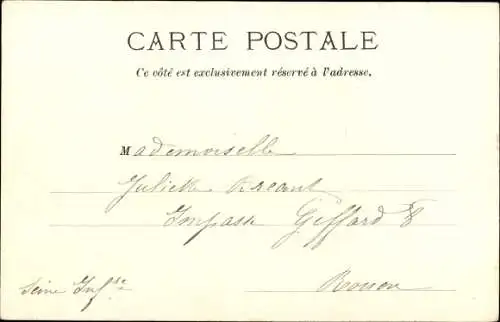 CARTE POSTALE
Ce côté est exclusivement réservé à l'adresse.
Mademoiselle
Impasse Giffard 8
Rouen
Seine Infre